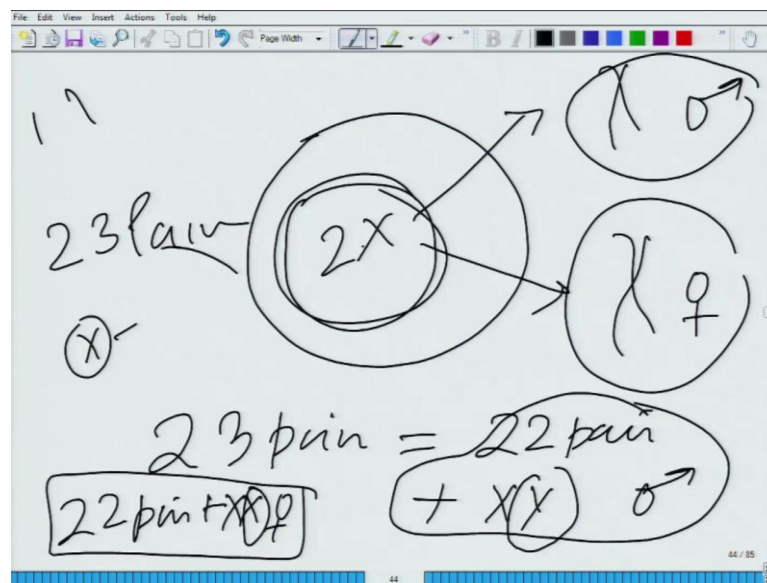 File Edit View Insert Actions Tools Help
Page Width
B I
X ♂
23 Pair
2X
X ♀
X
23 pair = 22 pair
+ XY ♂
22 pair + XX ♀
44 / 85
44